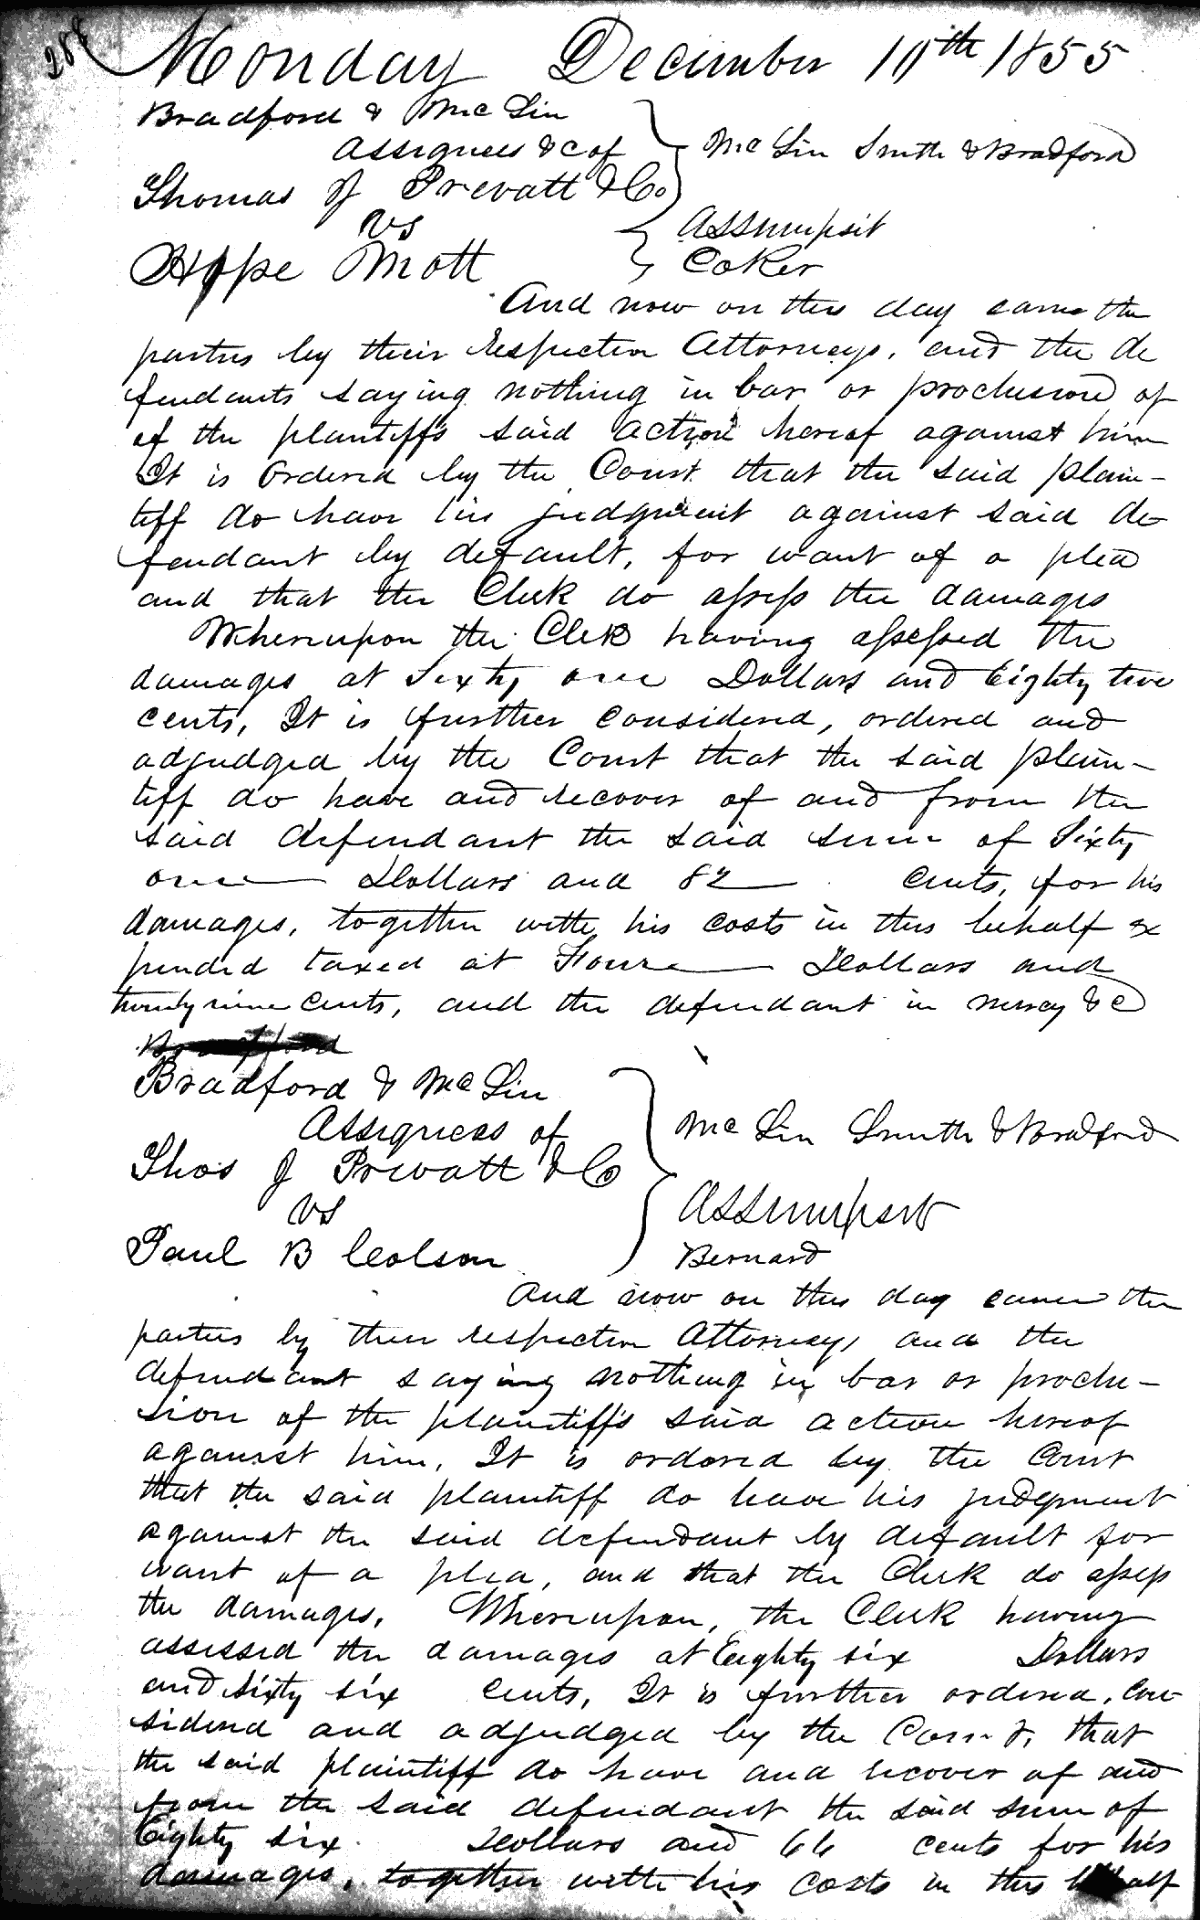 Monday December 10th 1855
Bradford & McLin
Assignees &c of
McLin Smith & Bradford
Thomas J Prevatt & Co
vs
Assumpsit
Hope Mott
Coker
And now on this day came the
parties by their respective Attorneys, and the de
fendants saying nothing in bar or preclusion of
of the plaintiffs said action hereof against him
It is Ordered by the Court that the said plain-
tiff do have his judgment against said de
fendant by default, for want of a plea
and that the Clerk do assess the damages
Whereupon the Clerk having assessed the
damages at Sixty one Dollars and Eighty two
cents, It is further considered, ordered and
adjudged by the Court that the said plain-
tiff do have and recover of and from the
said defendant the said sum of Sixty
one Dollars and 82 cents, for his
damages, together with his costs in this behalf ex
pended taxed at Four Dollars and
twenty nine cents, and the defendant in mercy &c
Bradford
Bradford & McLin
Assignees of
McLin Smith & Bradford
Thos J Prevatt & Co
vs
Assumpsit
Paul B Colson
Bernard
And now on this day came the
parties by their respective Attorneys and the
defendant saying nothing in bar or preclu-
sion of the plaintiffs said action hereof
against him, It is ordered by the Court
that the said plaintiff do have his judgment
against the said defendant by default for
want of a plea, and that the Clerk do assess
the damages. Whereupon, the Clerk having
assessed the damages at Eighty six Dollars
and Sixty six cents, It is further ordered, con
sidered and adjudged by the Court, that
the said plaintiff do have and recover of and
from the said defendant the said sum of
Eighty six Dollars and 66 cents for his
damages, together with his costs in this behalf